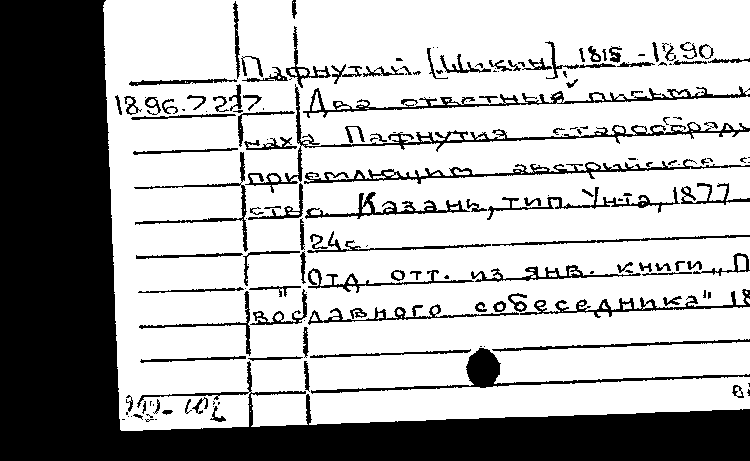 Пафнутий [Шикин], 1815-1890
1896.7227 Два ответныя письма
наха Пафнутия старообрядц
приемлющим австрийское с
ство. Казань, тип. Ун-та, 1877
24с.
"Отд. отт. из янв. книги „П
вославного собеседника" 18